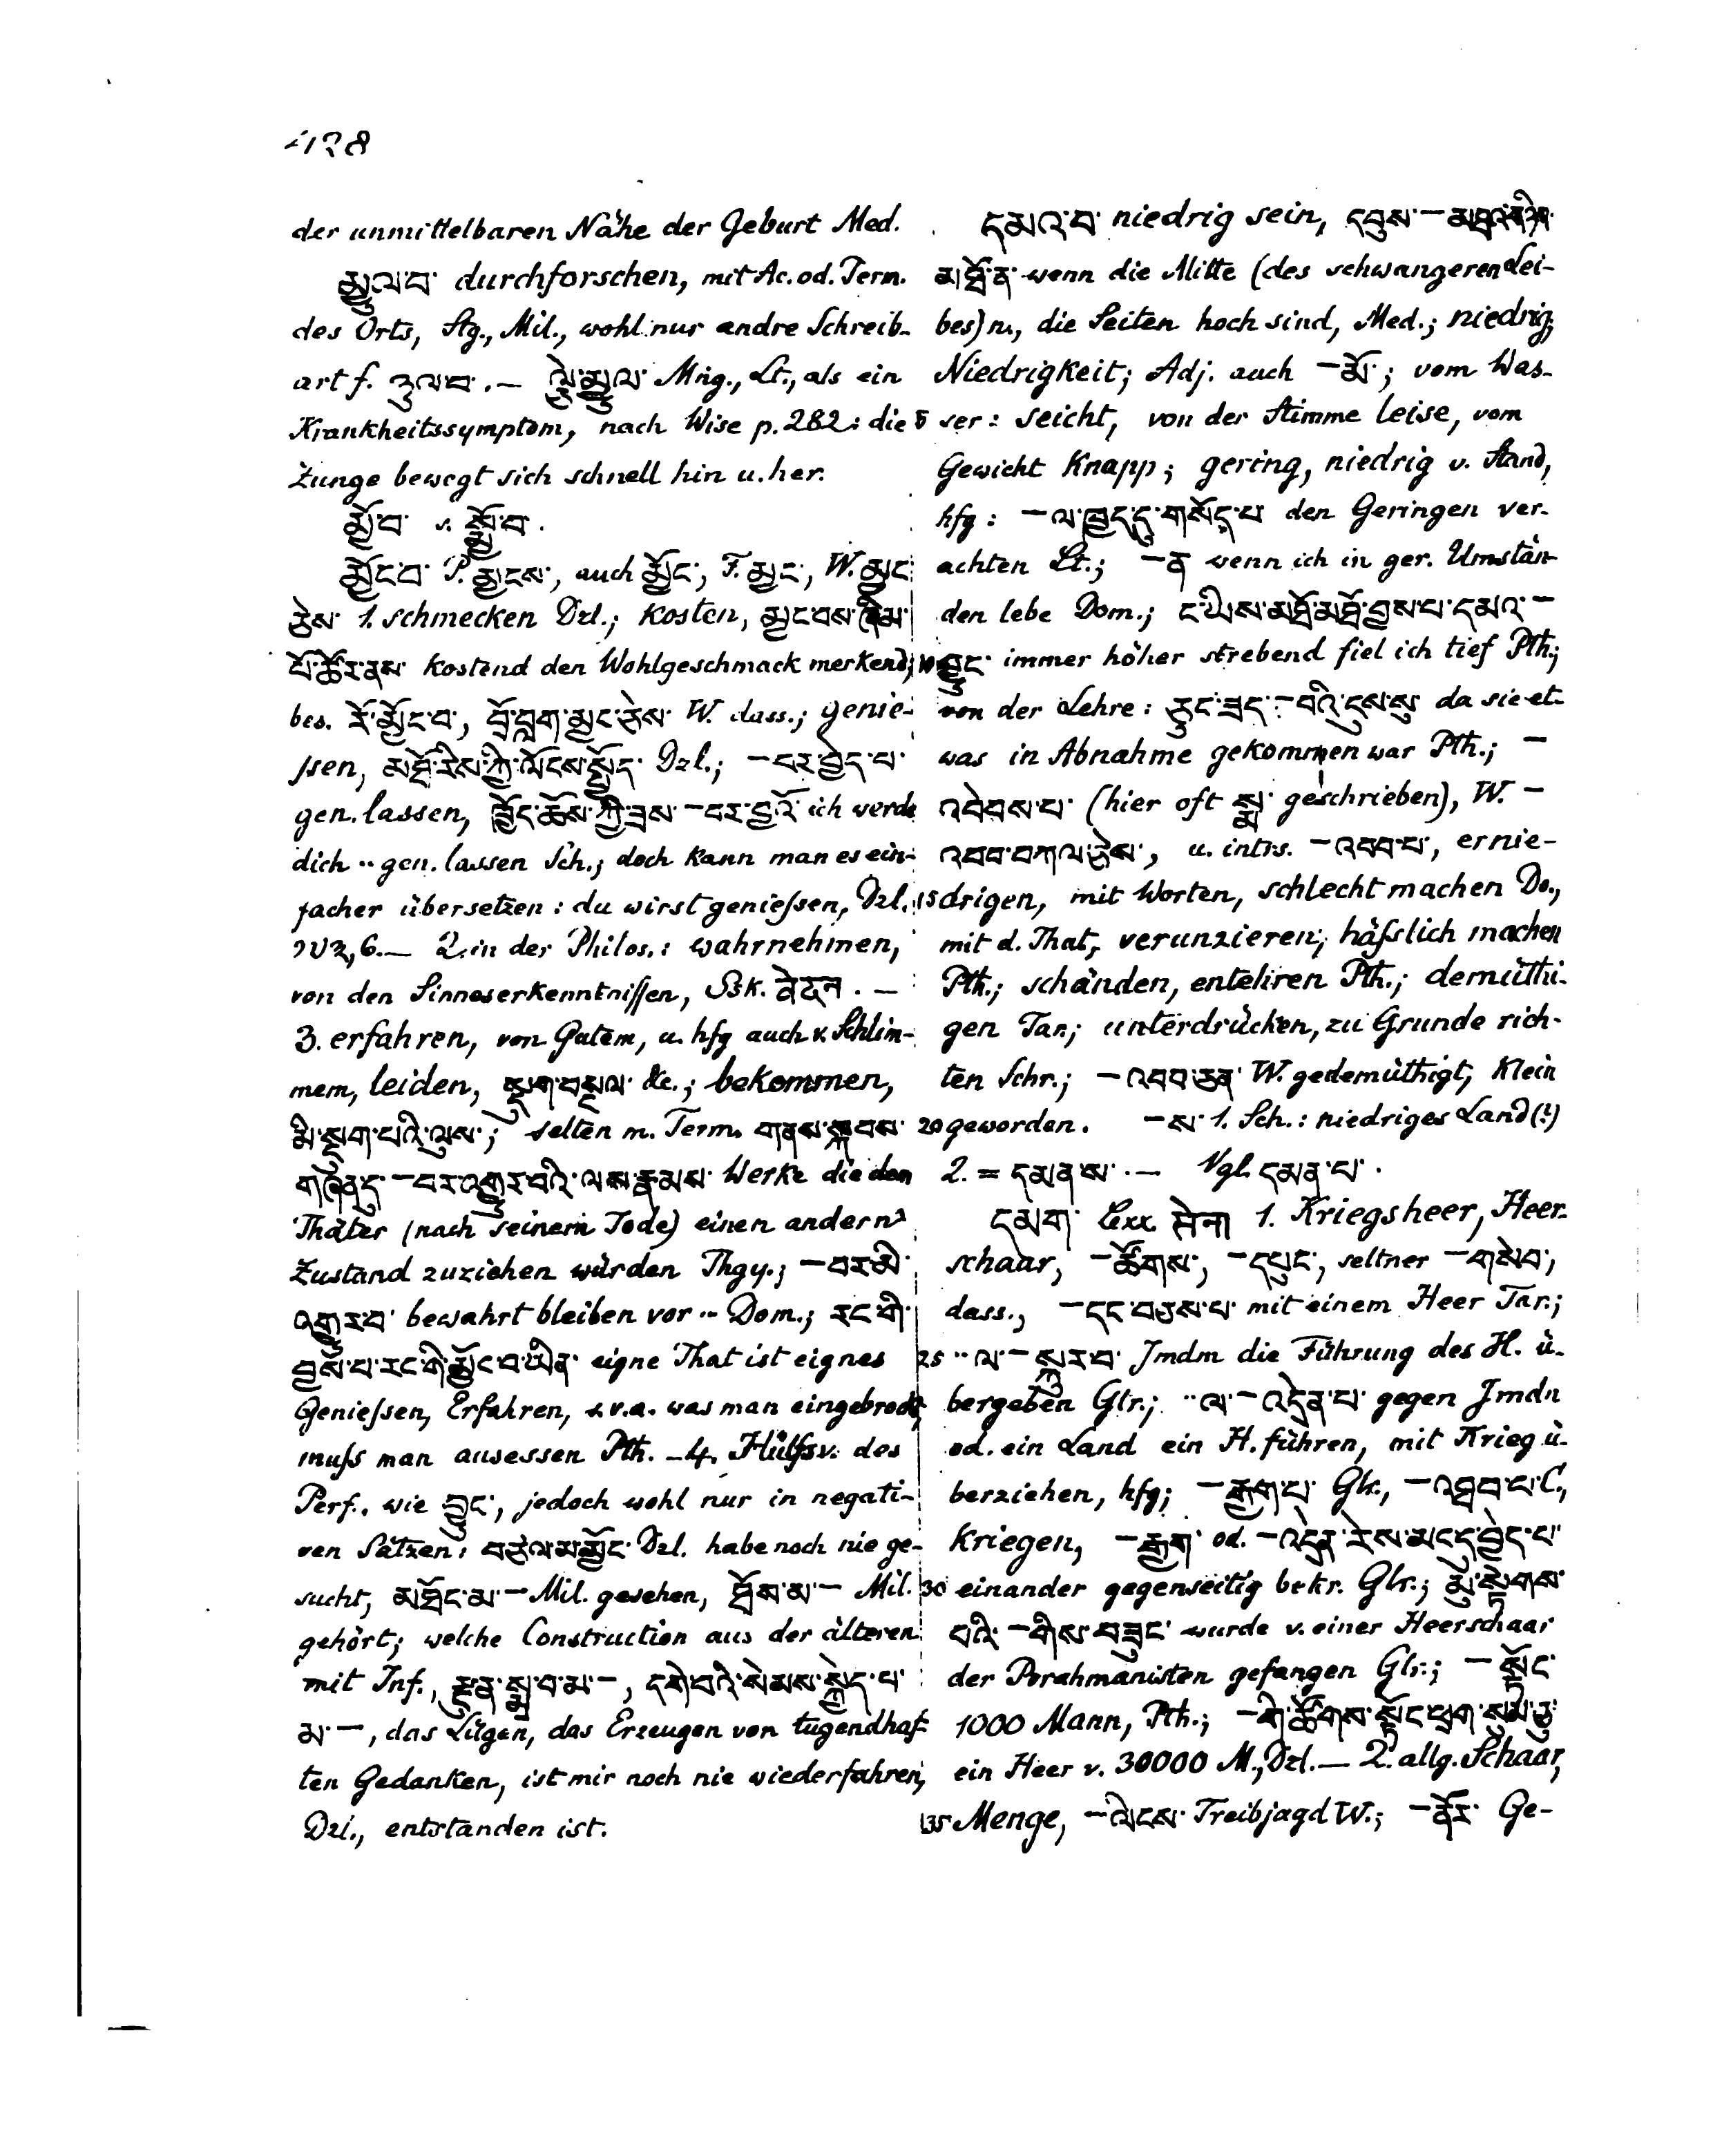 428
der unmittelbaren Nähe der Geburt Med.
མྱུལ་བ་ durchforschen, mit Ac. od. Term.
des Orts, Stg., Mil., wohl nur andre Schreib-
art f. ཉུལ་བ་. — ལྕེ་མྱུལ་ Mng., Lt., als ein
Krankheitssymptom, nach Wise p. 282: die
Zunge bewegt sich schnell hin u. her.
མྱོ་བ་ s. སྨྱོ་བ་.
མྱོང་བ་ P. མྱངས་, auch མྱོང་, F. མྱང་, W. མྱང་
ཅེས་ 1. schmecken Dzl.; kosten, མྱང་བས་ཞིམ་
པོ་ཚོར་ནས་ kostend den Wohlgeschmack merkend;
bes. རོ་མྱོང་བ་, བྲོ་བླག་མྱང་ཅེས་ W. dass.; genie-
ssen, མཐོ་རིས་ཀྱི་ལོངས་སྤྱོད་ Dzl.; —བར་བྱེད་པ་
gen. lassen, ཁྱོད་ཆོས་ཀྱི་ཟས་—བར་བྱའོ་ ich werde
dich ·· gen. lassen Sch.; doch kann man es ein-
facher übersetzen: du wirst geniessen, Dzl.
༢༧༣, 6. — 2. in der Philos.: wahrnehmen,
von den Sinneserkenntnissen, Ssk. वेदन. —
3. erfahren, von Gutem, u. hfg auch v. Schlim-
mem, leiden, སྡུག་བསྔལ་ &c.; bekommen,
མི་སྡུག་པའི་ལུས་; selten m. Term. གནས་སྐབས་
གཞན་དུ་—བར་འགྱུར་བའི་ལས་རྣམས་ Werke die den
Thäter (nach seinem Tode) einen andern
Zustand zuziehen würden Thgy.; —བར་མི་
འགྱུར་བ་ bewahrt bleiben vor ·· Dom.; རང་གི་
བྱས་པ་རང་གི་མྱོང་བ་ཡིན་ eigne That ist eignes
Geniessen, Erfahren, s.v.a. was man eingebrockt,
muss man ausessen Pth. — 4. Hülfsv. des
Perf., wie བྱུང་, jedoch wohl nur in negati-
ven Sätzen: བཙལ་མ་མྱོང་ Dzl. habe noch nie ge-
sucht, མཐོང་མ་— Mil. gesehen, ཐོས་མ་— Mil.
gehört; welche Construction aus der älteren
mit Inf., རྫུན་སྨྲ་བ་མ་—, དགེ་བའི་སེམས་སྐྱེད་པ་
མ་—, das Lügen, das Erzeugen von tugendhaf-
ten Gedanken, ist mir noch nie wiederfahren,
Dzl., entstanden ist.
དམའ་བ་ niedrig sein, དབུས་—
མཐོ་ན་ wenn die Mitte (des schwangeren Lei-
bes) n., die Seiten hoch sind, Med.; niedrig,
Niedrigkeit; Adj. auch —མོ་; vom Was-
5 ser: seicht, von der Stimme leise, vom
Gewicht knapp; gering, niedrig v. Stand,
hfg: —ལ་ཁྱད་དུ་གསོད་པ་ den Geringen ver-
achten Lt.; —ན་ wenn ich in ger. Umstän-
den lebe Dom.; ང་ཡིས་མཐོ་མཐོ་བྱས་པ་དམའ་—
10 བྱུང་ immer höher strebend fiel ich tief Pth.;
von der Lehre: ཅུང་ཟད་—བའི་དུས་སུ་ da sie et-
was in Abnahme gekommen war Pth.; —
འབེབས་པ་ (hier oft སྨ་ geschrieben), W. —
འབབ་བཀལ་ཅེས་, u. intrs. —འབབ་པ་, ernie-
15 drigen, mit Worten, schlecht machen Do.,
mit d. That, verunzieren, hässlich machen
Pth.; schänden, entehren Pth.; demüthi-
gen Tar.; unterdrücken, zu Grunde rich-
ten Schr.; —འབབ་ཅན་ W. gedemüthigt, klein
20 geworden. —ས་ 1. Sch.: niedriges Land (?)
2. = དམན་ས་. — Vgl. དམན་པ་.
དམག་ Lexx. सेना 1. Kriegsheer, Heer-
schaar, —ཚོགས་, —དཔུང་, seltner —གསེབ་,
dass., —དང་བཅས་པ་ mit einem Heer Tar.;
25 ··ལ་—སྐུར་བ་ Jmdm die Führung des H. ü-
bergeben Glr.; ··ལ་—འདྲེན་པ་ gegen Jmdn
od. ein Land ein H. führen, mit Krieg ü-
berziehen, hfg; —རྒྱག་པ་ Glr., —འཐབ་པ་ C.,
kriegen, —རྒྱག་ od. —འདྲེན་རེས་མང་དུ་བྱེད་པ་
30 einander gegenseitig bekr. Glr.; མུ་སྟེགས་
པའི་—གིས་བཟུང་ wurde v. einer Heerschaar
der Porahmanisten gefangen Glr.; —སྟོང་
1000 Mann, Pth.; —གི་ཚོགས་སྟོང་ཕྲག་སུམ་ཅུ་
ein Heer v. 30000 M., Dzl. — 2. allg. Schaar,
35 Menge, —ལིངས་ Treibjagd W.; —ནོར་ Ge-